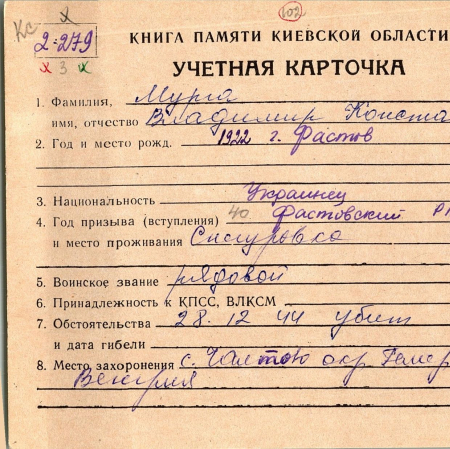 102
Кс х
2-279
х 3 х
КНИГА ПАМЯТИ КИЕВСКОЙ ОБЛАСТИ
УЧЕТНАЯ КАРТОЧКА
1. Фамилия, Мурга
имя, отчество Владимир Конста
2. Год и место рожд. 1922 г. Фастов
3. Национальность Украинец
4. Год призыва (вступления) 40 Фастовский
и место проживания
5. Воинское звание рядовой
6. Принадлежность к КПСС, ВЛКСМ
7. Обстоятельства 28.12 44 убит
и дата гибели
8. Место захоронения с. окр.
Венгрия